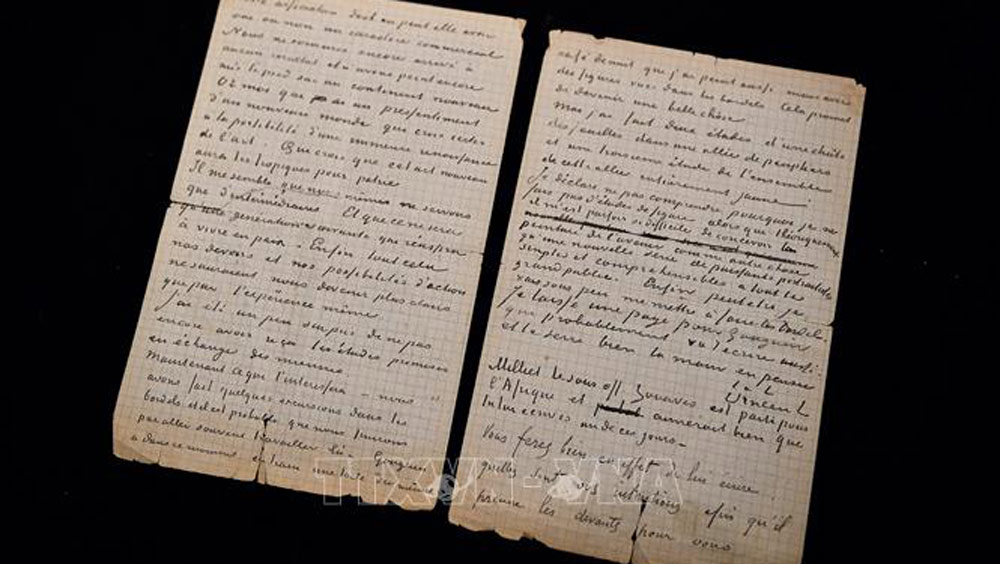 cette association dont on peut elle avoir
oui ou non un caractère commercial
Nous ne sommes encore arrivé à
aucun résultat et n'avons point encore
mis le pied sur un continent nouveau
Or moi qui ai un présentiment
d'un nouveau monde qui crois certes
à la possibilité d'une immense renaissance
de l'art. Qui crois que cet art nouveau
aura les tropiques pour patrie
Il me semble que nous mêmes ne servons
que d'intermédiaires Et que ce ne sera
qu'une génération suivante qui réussira
à vivre en paix. Enfin tout cela
nos devoirs et nos possibilités d'action
ne sauraient nous devenir plus clairs
que par l'expérience même
J'ai été un peu surpris de ne pas
encore avoir reçu les études promises
en échange des miennes
Maintenant ce qui t'intéressera – nous
avons fait quelques excursions dans les
bordels et il est probable que nous finirons
par aller souvent travailler là. Gauguin
a dans ce moment en train une toile du même
café de nuit que j'ai peint aussi mais avec
des figures vues dans les bordels Cela promet
de devenir une belle chose
Moi j'ai fait deux études d'une chute
des feuilles dans une allée de peupliers
et une troisième étude de l'ensemble
de cette allée entièrement jaune.
Je déclare ne pas comprendre pourquoi je ne
fais pas d'études de figure alors que théoriquement
il m'est parfois si difficile de concevoir la
peinture de l'avenir comme autre chose
qu'une nouvelle série de puissants portraitistes
simples et compréhensibles à tout le
grand public. Enfin peut être je
vais sous peu me mettre à faire les bordels.
Je laisse une page pour Gauguin
qui probablement va t'écrire aussi
et te serre bien la main en pensée
t. à t.
Vincent
Milliet le sous off. Zouaves est parti pour
l'Afrique et aimerait bien que
tu lui écrives un de ces jours –
Vous ferez bien en effet de lui écrire
quelles sont vos intentions afin qu'il
prenne les devants pour vous
TTXVN-VNA